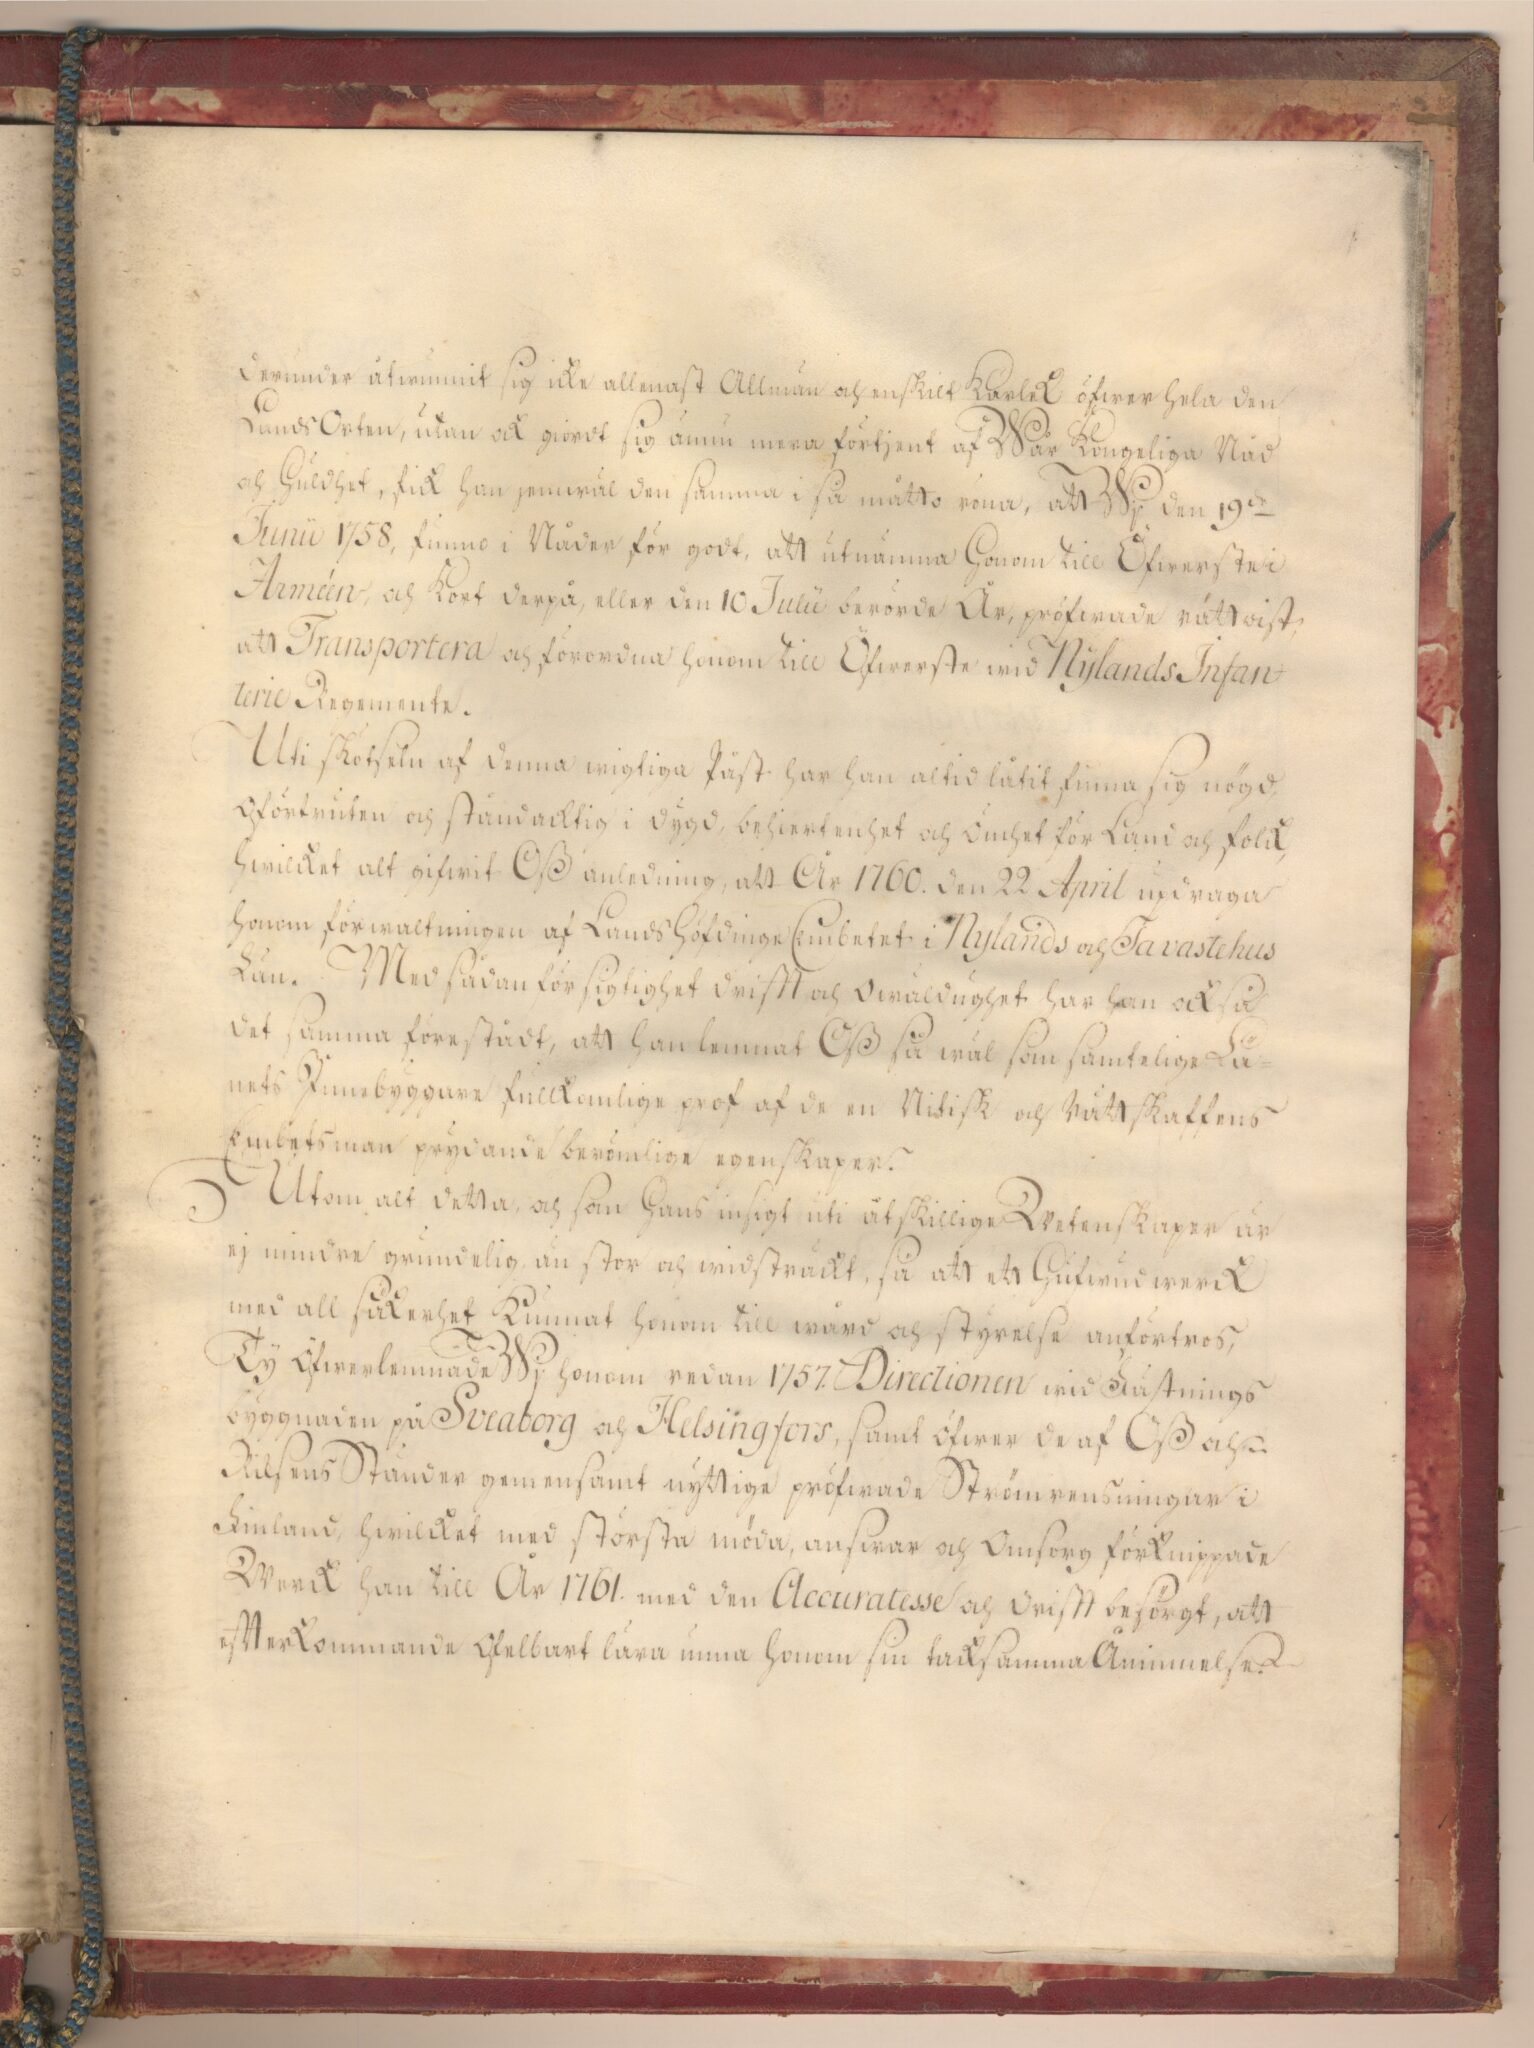 derunder återwunnit sig icke allenast Allmän och enskilt Kärlek öfwer hela den
Lands Orten, utan ock giordt sig ännu mera förtjent af Wår Kongeliga Nåd
och Huldhet, fick han jemwäl den samma i så måtto röna, att Wj den 19de
Junii 1758, funno i Nåder för godt, att utnämna honom till Öfwerste i
Arméen, och Kort derpå, eller den 10 Julii berörde År, pröfwade rättwist,
att Transportera och förordna honom till Öfwerste wid Nylands Infan
terie Regemente.
Uti skötseln af denna wigtiga Påst har han altid låtit finna sig nögd,
Oförtruten och ståndacktig i dygd, behiertenhet och ömhet för Land och folck,
hwilcket alt gifwit Oß anledning, att År 1760. den 22 April updraga
honom förwaltningen af Lands Höfdinge Embetet i Nylands och Tavastehus
Län. Med sådan försigtighet drifft och Owäldughet har han också
det samma förestådt, att han lemnat Oß så wäl som samtelige Lä-
nets Innebyggare fullkomlige prof af de en Nitisk och Rättskaffens
Embetsman prydande berömlige egenskaper.
Utom alt detta, och som Hans insigt uti åtskillige Wetenskaper är
ej mindre grundelig, än stor och widsträckt, så att ett Hufwudwerck
med all säkerhet Kunnat honom till wård och styrelse anförtros,
Ty Öfwerlemnade Wj honom redan 1757. Directionen wid Fästnings
byggnaden på Sveaborg och Helsingfors, samt öfwer de af Oß och
Riksens Ständer gemensamt nyttige pröfwade Strömrensningar i
Finland, hwilcket med största möda, answar och Omsorg förknippade
Werck han till År 1761. med den Accuratesse och drifft besörgt, att
efterkommande Ofelbart lära unna honom sin tacksamma Åminnelse.